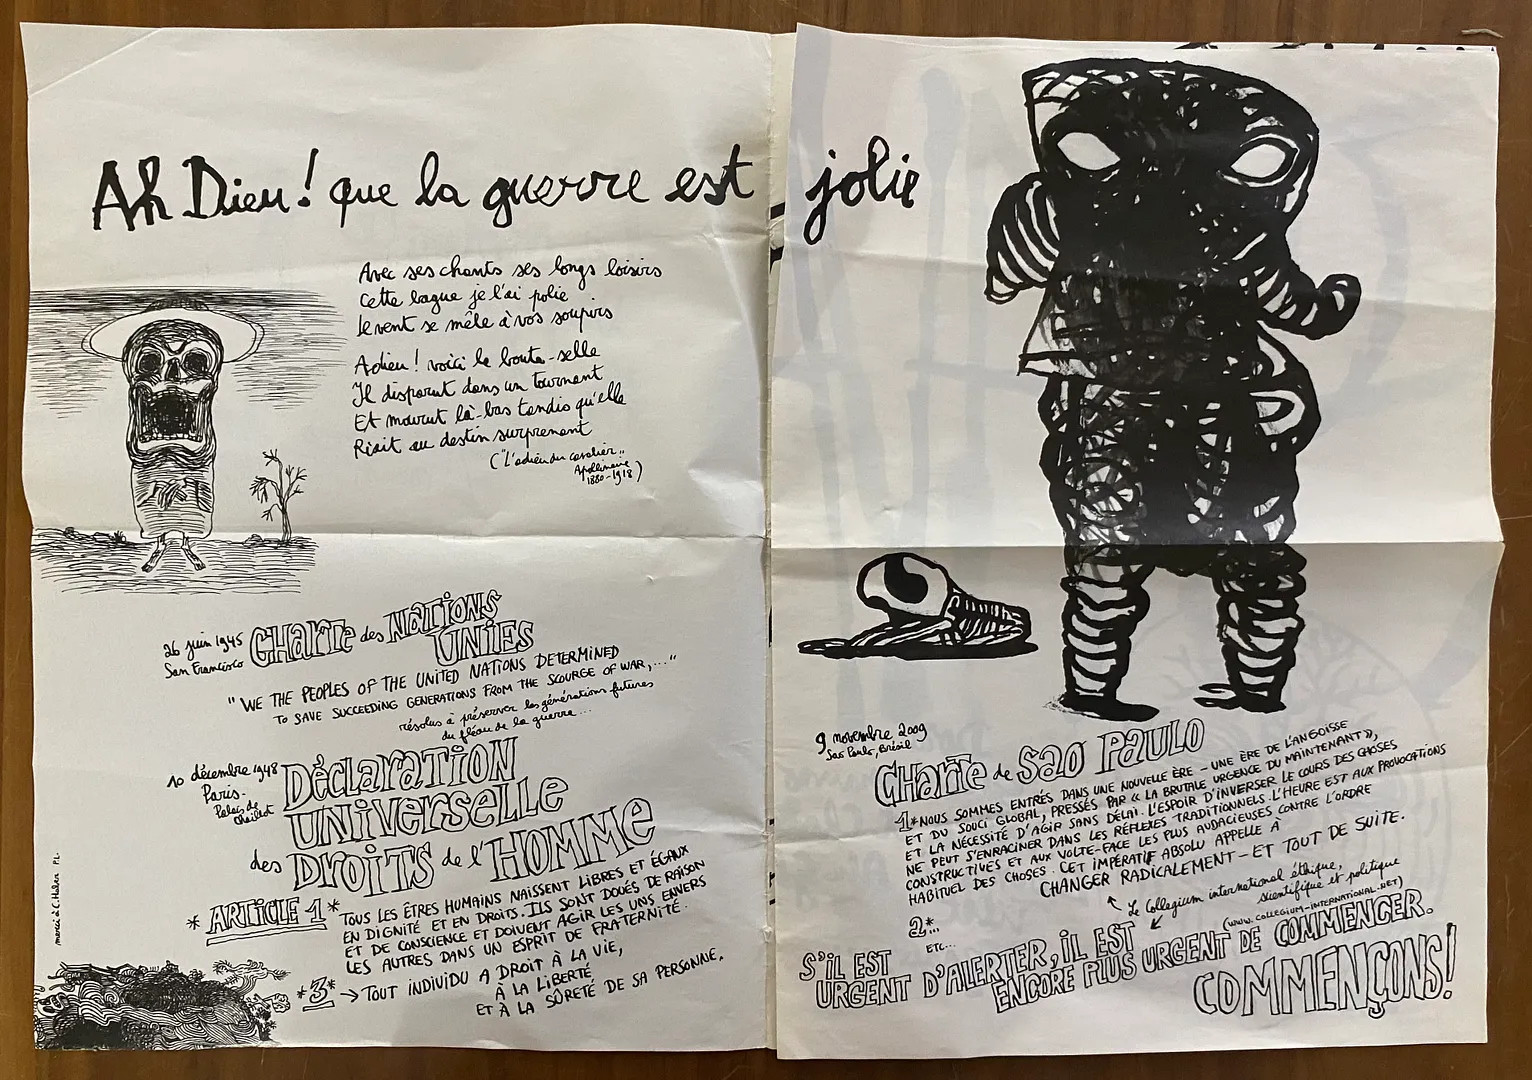 Ah Dieu! que la guerre est jolie
Avec ses chants ses longs loisirs
Cette bague je l'ai polie
Le vent se mêle à vos soupirs
Adieu! voici le boute-selle
Il disparut dans un tournant
Et mourut là-bas tandis qu'elle
Riait au destin surprenant
("L'adieu du cavalier"
Apollinaire
1880-1918)
26 juin 1945
San Francisco
CHARTE des NATIONS
UNIES
"WE THE PEOPLES OF THE UNITED NATIONS DETERMINED
TO SAVE SUCCEEDING GENERATIONS FROM THE SCOURGE OF WAR,..."
résolus à préserver les générations futures
du fléau de la guerre...
10 décembre 1948
Paris.
Palais de
Chaillot
DÉCLARATION
UNIVERSELLE
des DROITS de l'HOMME
* ARTICLE 1 *
TOUS LES ÊTRES HUMAINS NAISSENT LIBRES ET ÉGAUX
EN DIGNITÉ ET EN DROITS. ILS SONT DOUÉS DE RAISON
ET DE CONSCIENCE ET DOIVENT AGIR LES UNS ENVERS
LES AUTRES DANS UN ESPRIT DE FRATERNITÉ.
*3* → TOUT INDIVIDU A DROIT À LA VIE,
À LA LIBERTÉ
ET À LA SÛRETÉ DE SA PERSONNE.
merci à C. P.L.
9 novembre 2009
Sao Paulo, Brésil
CHARTE de SAO PAULO
1* NOUS SOMMES ENTRÉS DANS UNE NOUVELLE ÈRE - UNE ÈRE DE L'ANGOISSE
ET DU SOUCI GLOBAL, PRESSÉS PAR « LA BRUTALE URGENCE DU MAINTENANT »,
ET LA NÉCESSITÉ D'AGIR SANS DÉLAI. L'ESPOIR D'INVERSER LE COURS DES CHOSES
NE PEUT S'ENRACINER DANS LES RÉFLEXES TRADITIONNELS. L'HEURE EST AUX PROVOCATIONS
CONSTRUCTIVES ET AUX VOLTE-FACE LES PLUS AUDACIEUSES CONTRE L'ORDRE
HABITUEL DES CHOSES. CET IMPÉRATIF ABSOLU APPELLE À
CHANGER RADICALEMENT - ET TOUT DE SUITE.
Le Collegium international éthique,
scientifique et politique
(WWW.COLLEGIUM-INTERNATIONAL.NET)
2*...
ETC...
S'IL EST
URGENT D'ALERTER, IL EST
ENCORE PLUS URGENT DE COMMENCER.
COMMENÇONS!